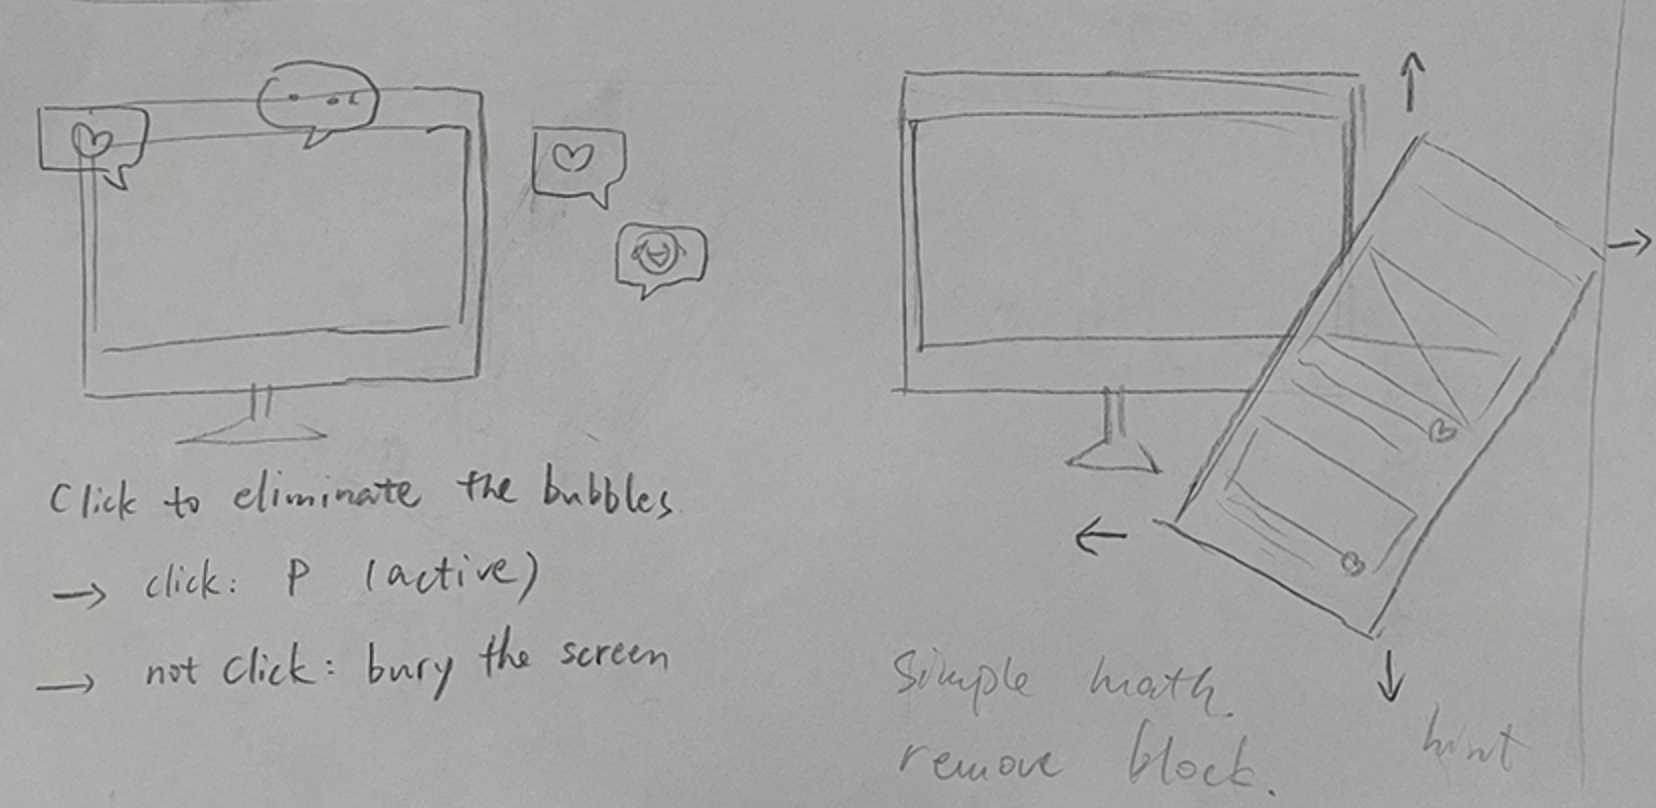 Click to eliminate the bubbles
→ click: P (active)
→ not click: bury the screen
Simple math.
remove block.
hint